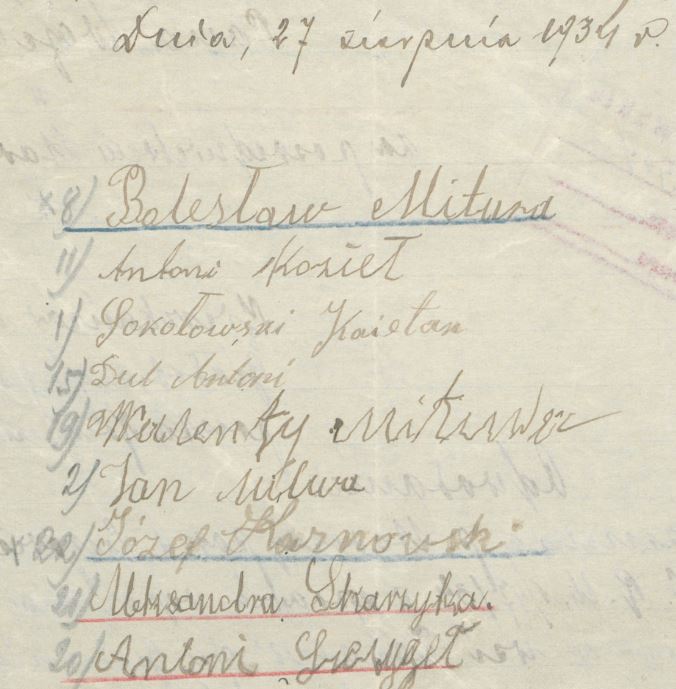 Dnia, 27 sierpnia 1934 r.
x 8/ Bolesław Mitura
11/ Antoni Kozieł
1/ Sokołowski Kaietan
15/ Dul Antoni
19/ Walenty
2/ Jan Mitura
x 22/ Józef Kurnowski
21/ Aleksandra Skarzyka.
20/ Antoni